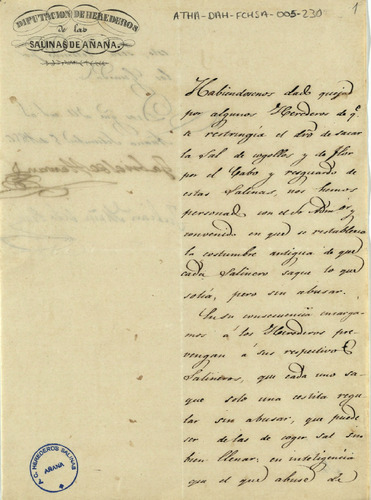 DIPUTACION DE HEREDEROS
de las
SALINAS DE AÑANA.
ATHA-DAH-FCHSA-005-230
1
Habiendosenos dado quejas
por algunos Herederos de q.e
se restringia el dro de sacar
la Sal de cogollos y de flor
por el Cabo y resguardo de
estas Salinas, nos hemos
personado con el Sr Adm.or y
convenido en que se restablezca
la costumbre antigua de que
cada Salinero saque lo que
solia, pero sin abusar.
En su consecuencia encarga-
mos á los Herederos pre-
vengan á sus respectivos
Salineros, que cada uno sa-
que solo una cestita regu-
lar sin abusar, que puede
ser de las de coger sal sin
bien llenar, en inteligencia
que el que abuse de
P. G. HEREDEROS SALINAS
AÑANA